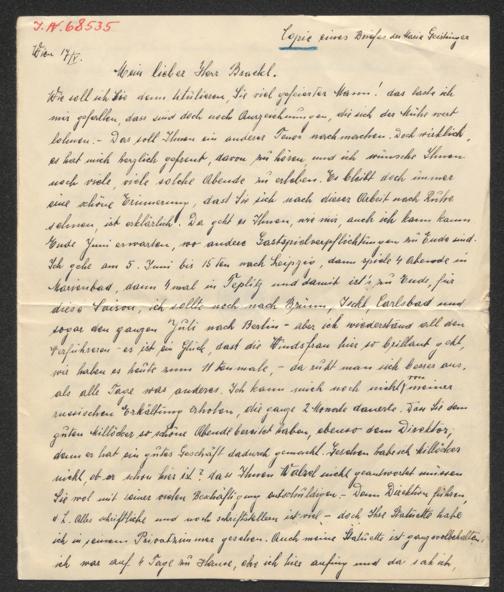 I.N. 68535
Copie eines Briefes der Marie Geistinger
Wien 17/IV.
Mein lieber Herr Brackl.
Wie soll ich Sie denn titulieren, Sie viel gefeierter Mann! das laste ich
mir gefallen, dass sind doch noch Auszeichnungen, die sich der Mühe wert
lohnen. - Das soll Ihnen ein anderer Tenor nachmachen. Doch wirklich,
es hat mich herzlich gefreut, davon zu hören, und ich wünsche Ihnen
noch viele, viele solche Abende zu erleben. Es bleibt doch immer
eine schöne Erinnerung, dass Sie sich nach dieser Arbeit nach Ruhe
sehnen, ist erklärlich. Da geht es Ihnen, wie mir, auch ich kann kaum
Ende Juni erwarten, wo andere Gastspielverpflichtungen zu Ende sind.
Ich gehe am 5. Juni bis 15ten nach Leipzig, dann spiele 4 Abende in
Marienbad, dann 4 mal in Teplitz und damit ist's zu Ende, für
diese Saison, ich sollte noch nach Brünn, Ischl, Carlsbad und
sogar den ganzen Juli nach Berlin - aber ich wiederstand all den
Verführern - es ist ein Glück, dass die Windsfrau hier so brillant geht,
wir haben es heute zum 11tenmale, - da ruht man sich besser aus,
als alle Tage was anderes. Ich kann mich noch nicht von meiner
russischen Erkältung erholen, die ganze 2 Monate dauerte. Dass Sie dem
guten Millöcker so schöne Abende bereitet haben, ebenso dem Direktor,
denn er hat ein gutes Geschäft dadurch gemacht. Gesehen habe ich Millöcker
nicht, ob er schon hier ist? dass Ihnen Walzel nicht geantwortet müssen
Sie wol mit seiner vielen Beschäftigung entschuldigen - Denn Direktion führen,
d. h. Alles schriftliche und noch schriftstellern ist viel - doch Ihre Statuette habe
ich in seinem Privatzimmer gesehen. Auch meine Statuette ist ganz wolbehalten,
ich war auf 4 Tage zu Hause, ehe ich hier anfing und da sah ich,